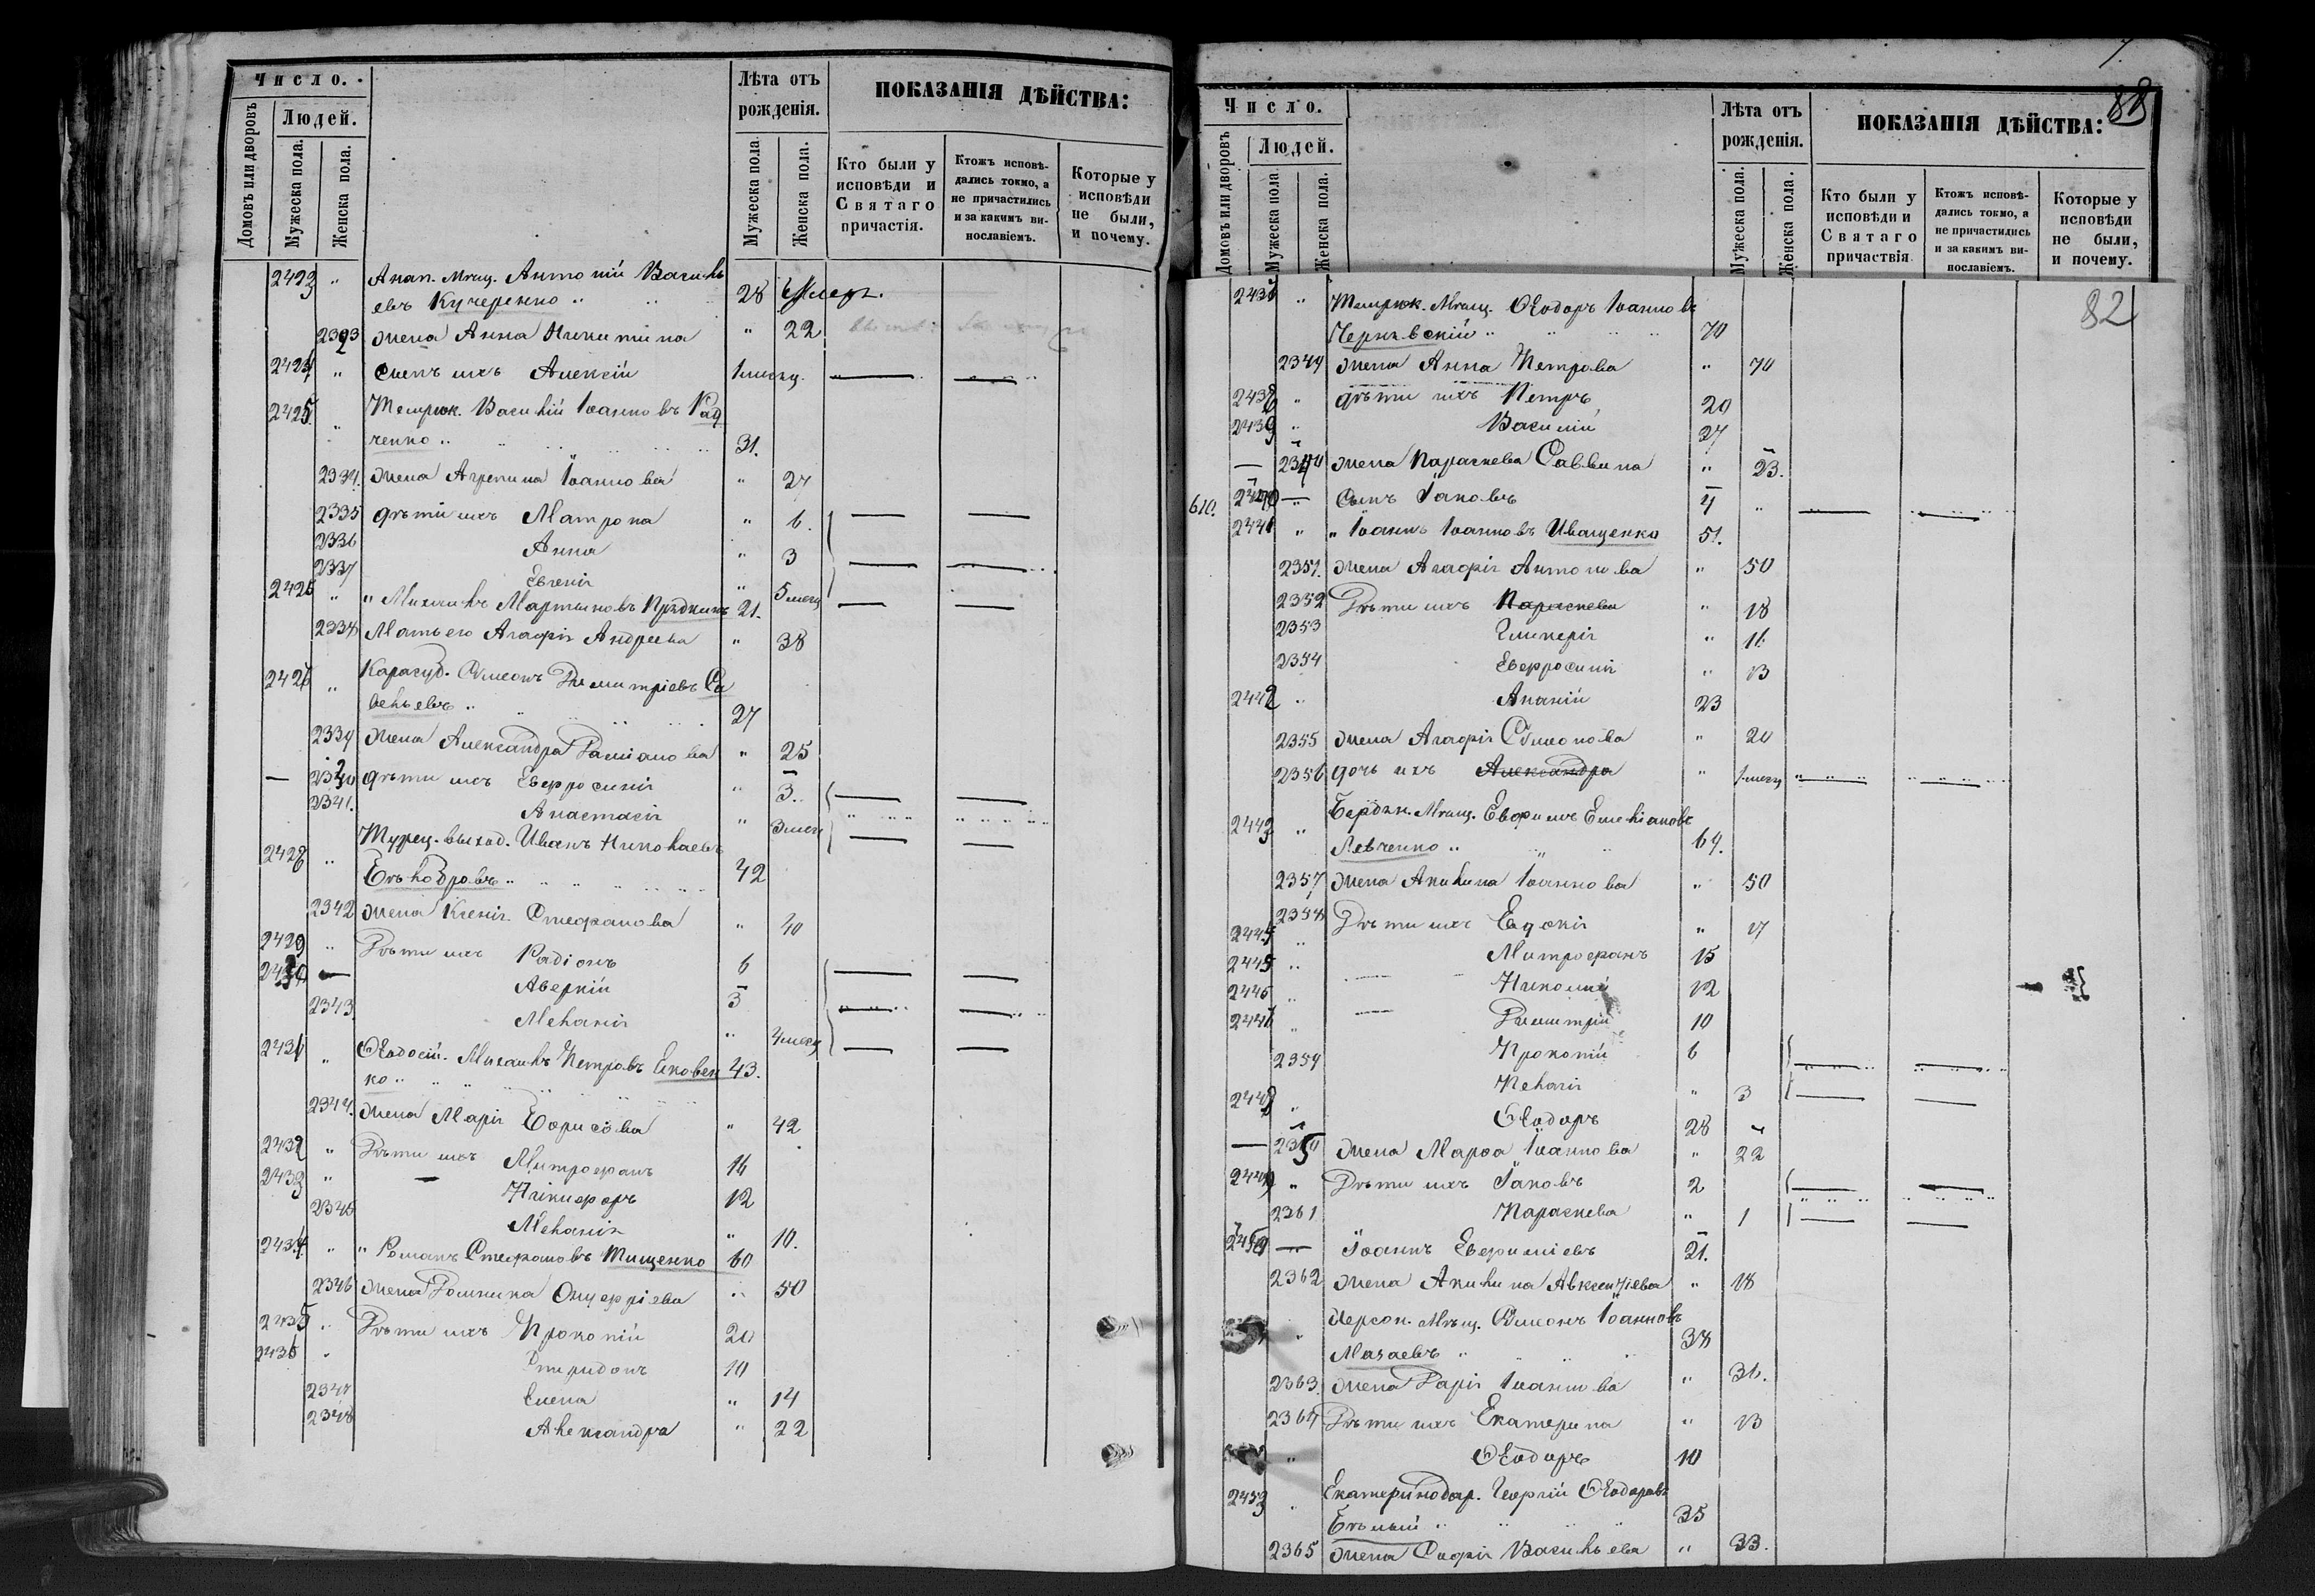 Число.
Домовъ или дворовъ
Людей.
Мужеска пола.
Женска пола.
Лѣта отъ рожденія.
Мужеска пола.
Женска пола.
ПОКАЗАНІЯ ДѢЙСТВА:
Кто были у исповѣди и Святаго причастія.
Ктожъ исповѣдались токмо, а не причастились и за какимъ винославіемъ.
Которые у исповѣди не были, и почему.
2423 " Анап. Мѣщ. Антоній Василь
евъ Кучеренко " " 28
жена Анна Никитина " 22
" Сынъ ихъ Алексій 1 мѣсяц.
2425 " Темрюк. Василій Іоанновъ Рад
ченко " 31.
2334. жена Агрепина Іоаннова " 27
2335 дѣти ихъ Матрона " 6.
2336 Анна " 3
2337 Евгенія " 5 мѣсяц
" " Михаилъ Мартыновъ 21.
2338 Мать его Агафія Андреева " 38
" Карасуб. Сѵмеонъ Димитріевъ Са
вельевъ " 27
2339 жена Александра Даміанова " 25
— 2340 дѣти ихъ Евфросинія " 3.
2341. Анастасія " 3 мѣсяц
2428 " Турец. выход. Иванъ Николаевъ
42
2342 жена Ксенія Стефанова " 40
2429 " Дѣти ихъ Радіонъ 6
2430 — Аверкій 3
2343 Меланія " 4 мѣсяц
2431 " Ѳеодосій. Михаилъ Петровъ Яковен 43.
ко "
2344. жена Марія Борисова " 42
2432 " Дѣти ихъ Митрофанъ 16
2433 " Никифоръ 12
2345 Меланія " 10.
2434 " " Романъ Стефановъ Тищенко 60
2346 жена Домникa Онуфріева " 50
2435 " Дѣти ихъ Прокопій 20
2436 " Спиридонъ 10
2347 Елена " 14
2348 Александра " 22
88
Число.
Домовъ или дворовъ
Людей.
Мужеска пола.
Женска пола.
Лѣта отъ рожденія.
Мужеска пола.
Женска пола.
ПОКАЗАНІЯ ДѢЙСТВА:
Кто были у исповѣди и Святаго причаствія
Ктожъ исповѣдались токмо, а не причастились и за какимъ винославіемъ.
Которые у исповѣди не были, и почему.
82
" Темрюк. Мѣщ. Ѳеодоръ Іоанновъ
70
2349 жена Анна Петрова " 70
2438 " дѣти ихъ Петръ 20
2439 " Василій 27
— 2350 жена Параскева Саввина " 23.
610. 2440 — Сынъ Іаковъ 4 "
2441 " " Іоаннъ Іоанновъ Иващенко 51.
2351. жена Агафія Антонова " 50
2352 Дѣти ихъ Параскева " 18
2353 Гликерія " 16
2354 Евфросинія " 13
2442 " Ананій 23
2355 жена Агафія Сѵмеонова " 20
2356 дочь ихъ Александра " 1 мѣсяц
2443 " Бердян. Мѣщ. Евфимъ Емеліановъ
Левченко " 64.
2357 жена Акилина Іоаннова " 50
2358 Дѣти ихъ Евдокія " 17
Митрофанъ 15
2445 " Николай 12
2446 " Димитрій 10
2447 " Прокопій 6
2359 Пелагія " 3
2448 " Ѳеодоръ 28
— жена Марѳа Іоаннова " 22
2449 " Дѣти ихъ Іаковъ 2
2361 Параскева " 1
2450 — Іоаннъ Евфиміевъ 21.
2362 жена Акилина Авксентіева " 18
" Херсон. Мѣщ. Сѵмеонъ Іоанновъ
Мазаевъ " 38
2363. жена Дарія Іоаннова " 36.
2364 Дѣти ихъ Екатерина " 13
" Ѳеодоръ 10
2453 " Екатеринодар. Георгій Ѳеодоровъ
Бѣлый " 35
2365 жена Софія Васильева " 33.